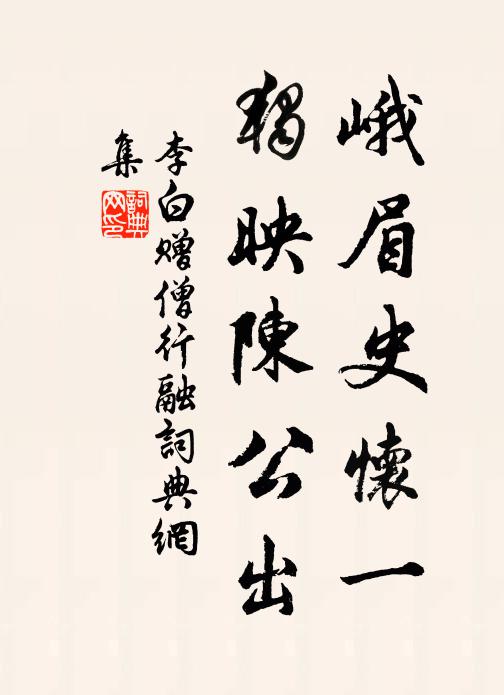 峨眉史懷一
獨映陳公出
李白贈僧行融詞典網
集
詞典
网印